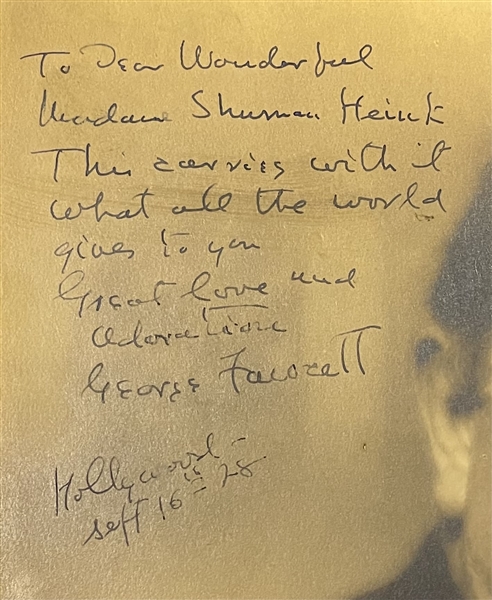 To Dear Wonderful
Madame Shuman Heink
This carries with it
what all the world
gives to you
Great love and
adoration
George Fawcett
Hollywood -
Sept 16th - 28